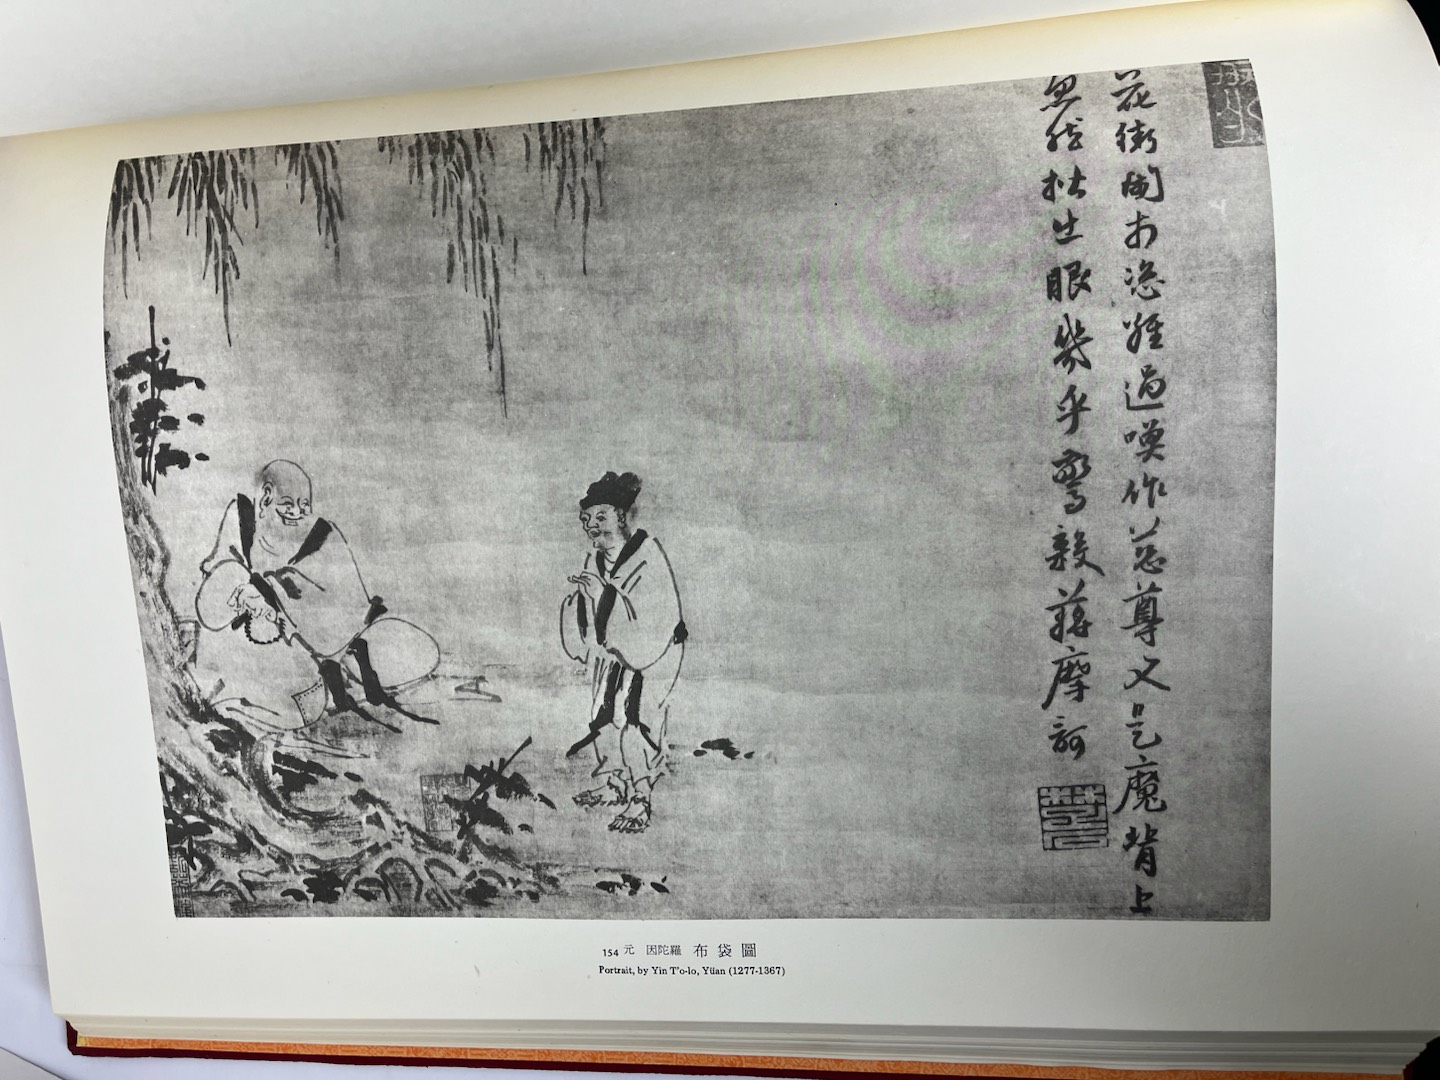 花街閙市恣經過喚作慈尊又是魔背上
忽然眼幾乎驚殺蔣摩訶
154 元 因陀羅 布袋圖
Portrait, by Yin T'o-lo, Yüan (1277-1367)